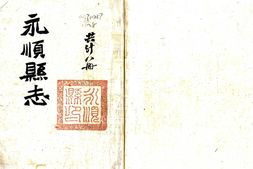 永順縣志
共計八冊
永順
縣政